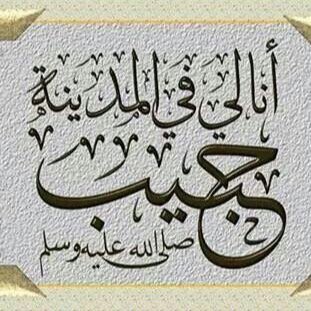 أنا لي في المدينة
حبيب
صلى الله عليه وسلم